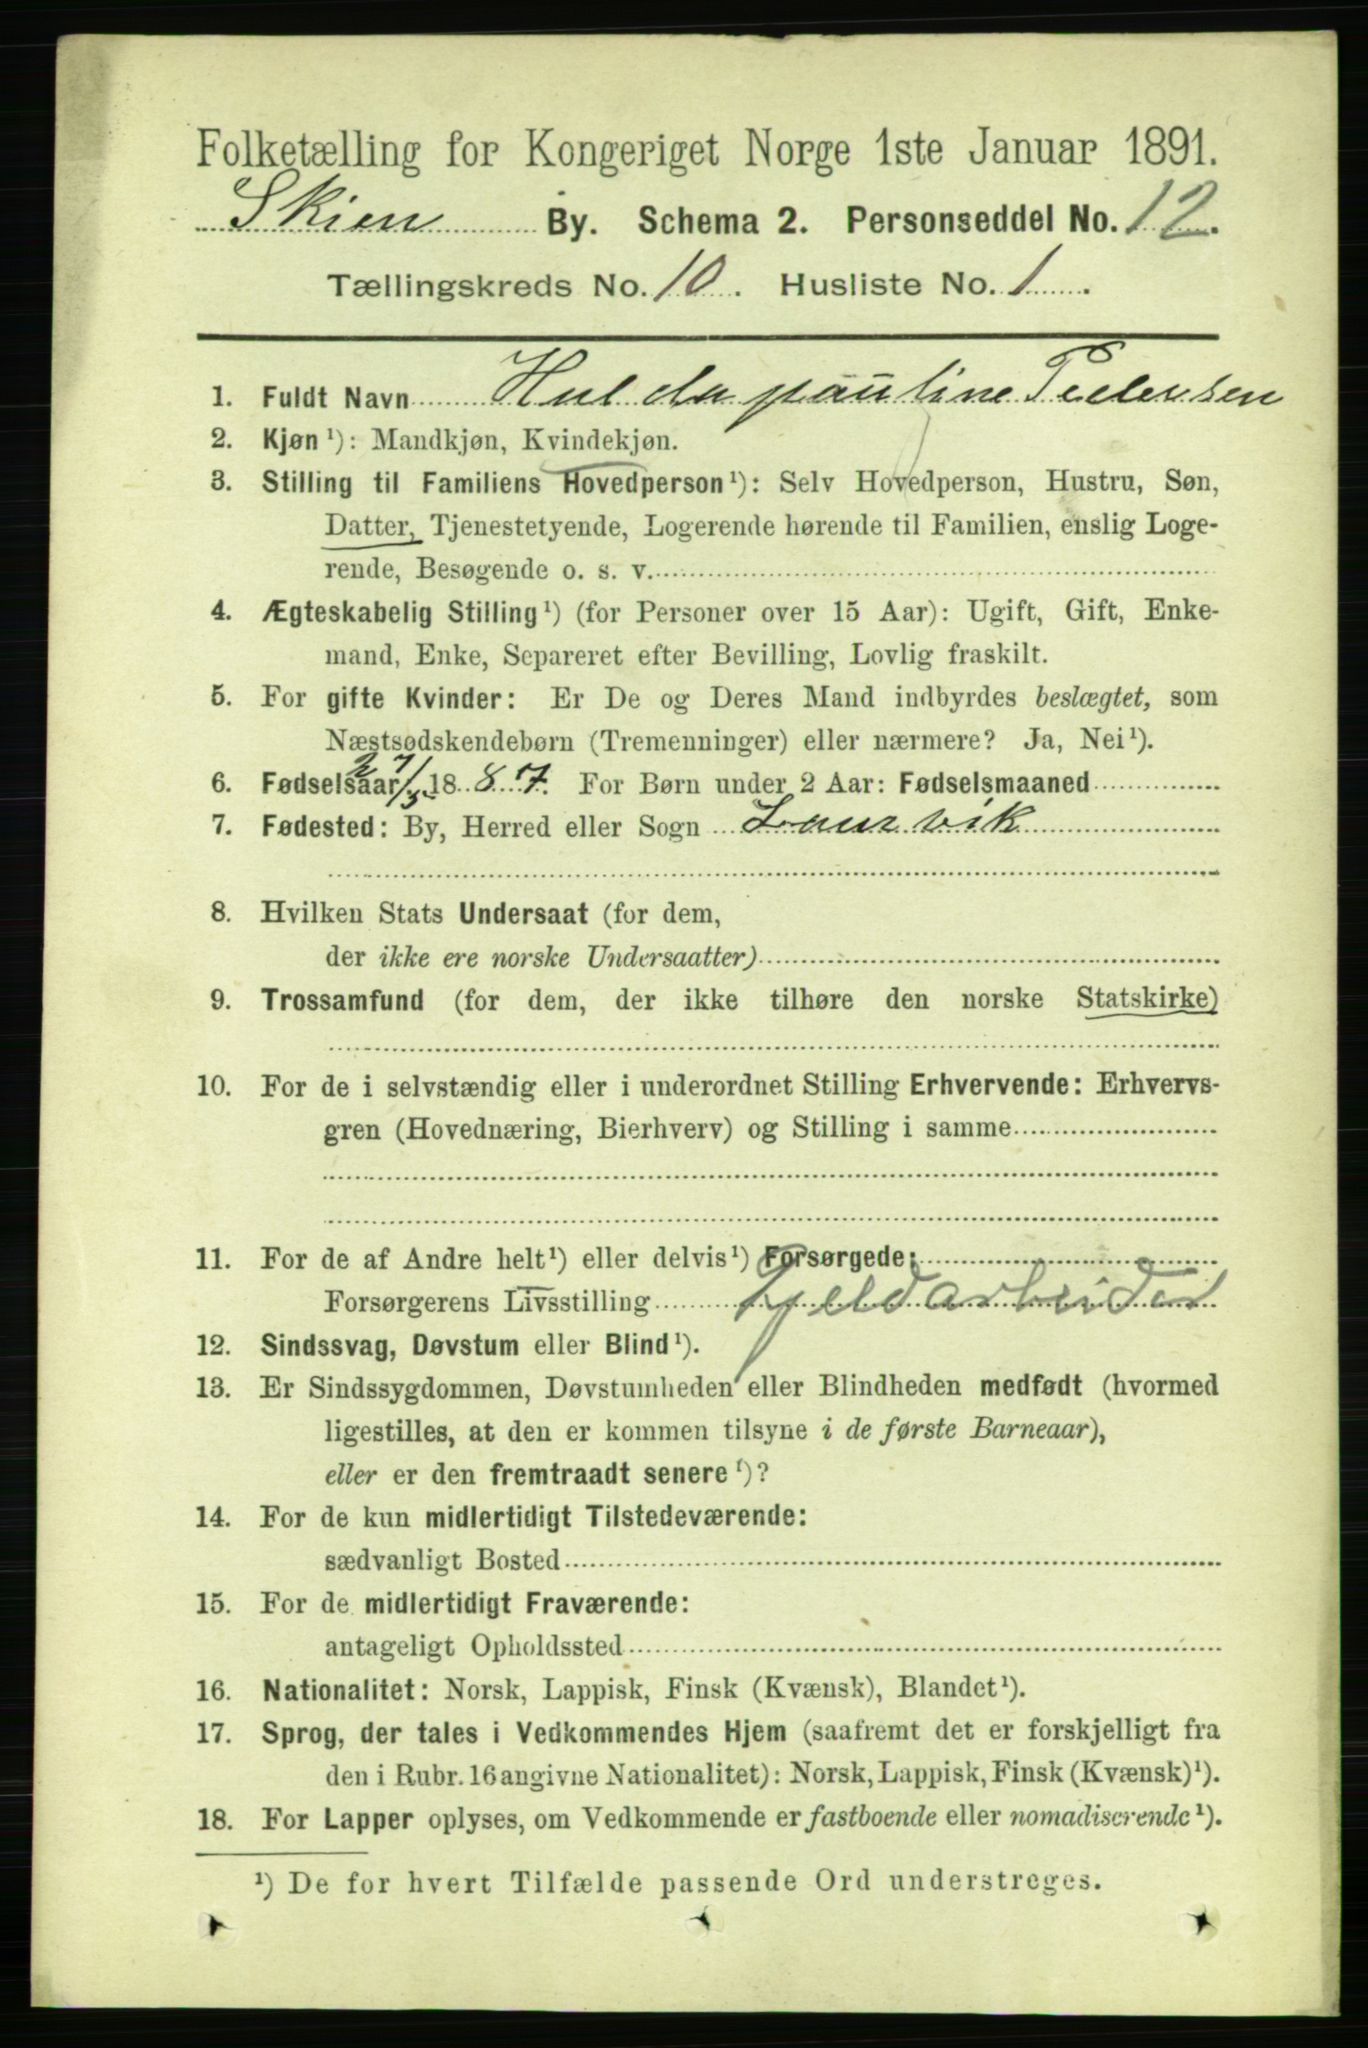 Folketælling for Kongeriget Norge 1ste Januar 1891.
Skien By. Schema 2. Personseddel No. 12.
Tællingskreds No. 10. Husliste No. 1.
1. Fuldt Navn Hulda pauline Pedersen
2. Kjøn ¹): Mandkjøn, Kvindekjøn.
3. Stilling til Familiens Hovedperson ¹): Selv Hovedperson, Hustru, Søn,
Datter, Tjenestetyende, Logerende hørende til Familien, enslig Loge-
rende, Besøgende o. s. v.
4. Ægteskabelig Stilling ¹) (for Personer over 15 Aar): Ugift, Gift, Enke-
mand, Enke, Separeret efter Bevilling, Lovlig fraskilt.
5. For gifte Kvinder: Er De og Deres Mand indbyrdes beslægtet, som
Næstsødskendebørn (Tremenninger) eller nærmere? Ja, Nei ¹).
6. Fødselsaar 27/3 1887. For Børn under 2 Aar: Fødselsmaaned
7. Fødested: By, Herred eller Sogn Laurvik
8. Hvilken Stats Undersaat (for dem,
der ikke ere norske Undersaatter)
9. Trossamfund (for dem, der ikke tilhøre den norske Statskirke)
10. For de i selvstændig eller i underordnet Stilling Erhvervende: Erhvervs-
gren (Hovednæring, Bierhverv) og Stilling i samme
11. For de af Andre helt ¹) eller delvis ¹) Forsørgede:
Forsørgerens Livsstilling Fjeldarbeider
12. Sindssvag, Døvstum eller Blind ¹).
13. Er Sindssygdommen, Døvstumheden eller Blindheden medfødt (hvormed
ligestilles, at den er kommen tilsyne i de første Barneaar),
eller er den fremtraadt senere ¹)?
14. For de kun midlertidigt Tilstedeværende:
sædvanligt Bosted
15. For de midlertidigt Fraværende:
antageligt Opholdssted
16. Nationalitet: Norsk, Lappisk, Finsk (Kvænsk), Blandet ¹).
17. Sprog, der tales i Vedkommendes Hjem (saafremt det er forskjelligt fra
den i Rubr. 16 angivne Nationalitet): Norsk, Lappisk, Finsk (Kvænsk) ¹).
18. For Lapper oplyses, om Vedkommende er fastboende eller nomadiserende ¹).
¹) De for hvert Tilfælde passende Ord understreges.